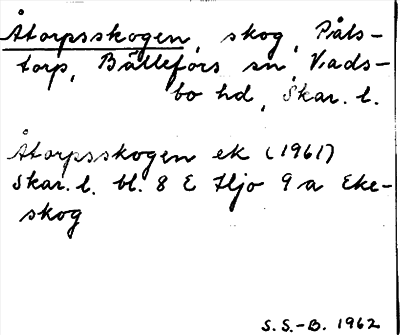 Åtorpsskogen, skog, Påls-
torp, Bällefors sn, Vads-
bo hd, Skar. l.
Åtorpsskogen ek (1961)
Skar. l. bl. 8 E Hjo 9 a Eke-
skog
S.S.-B. 1962